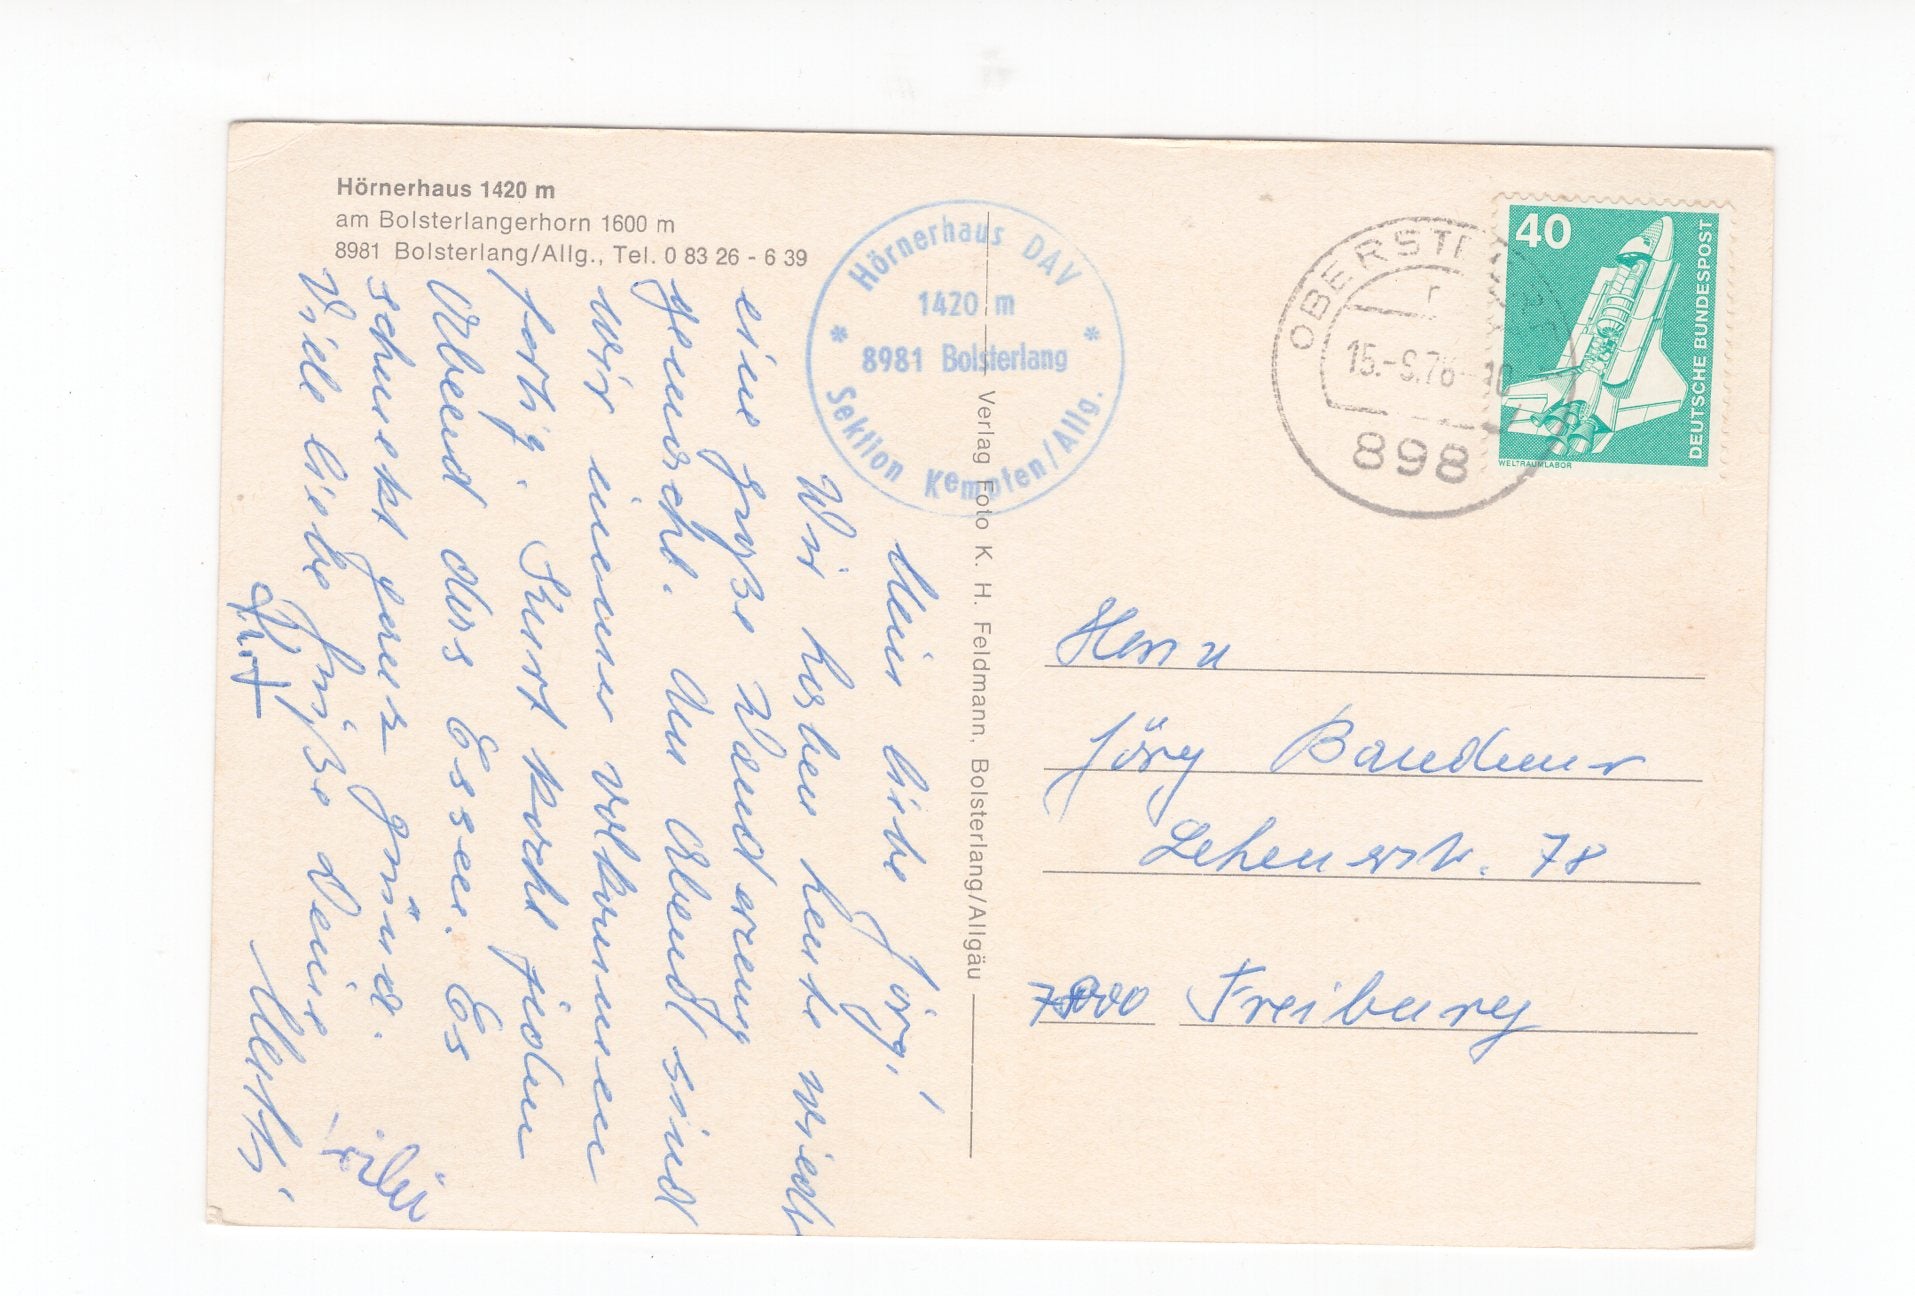 Hörnerhaus 1420 m
am Bolsterlangerhorn 1600 m
8981 Bolsterlang/Allg., Tel. 0 83 26 - 6 39
Hörnerhaus DAV
1420 m
* 8981 Bolsterlang *
Sektion Kempten/Allg.
Mein liebe Jörg!
Wir haben heute wieder
eine große Wanderung
gemacht. Am Abend sind
wir immer vollkommen
fertig. Kurt kocht jeden
Abend das Essen. Es
schmeckt ganz prima.
Viele liebe Grüße deine
Kurt
Verlag Foto K. H. Feldmann, Bolsterlang/Allgäu
OBERSTDORF
15.-9.76-10
898
40
DEUTSCHE BUNDESPOST
WELTRAUMLABOR
Herrn
Jörg
Lehenerstr. 78
Freiburg